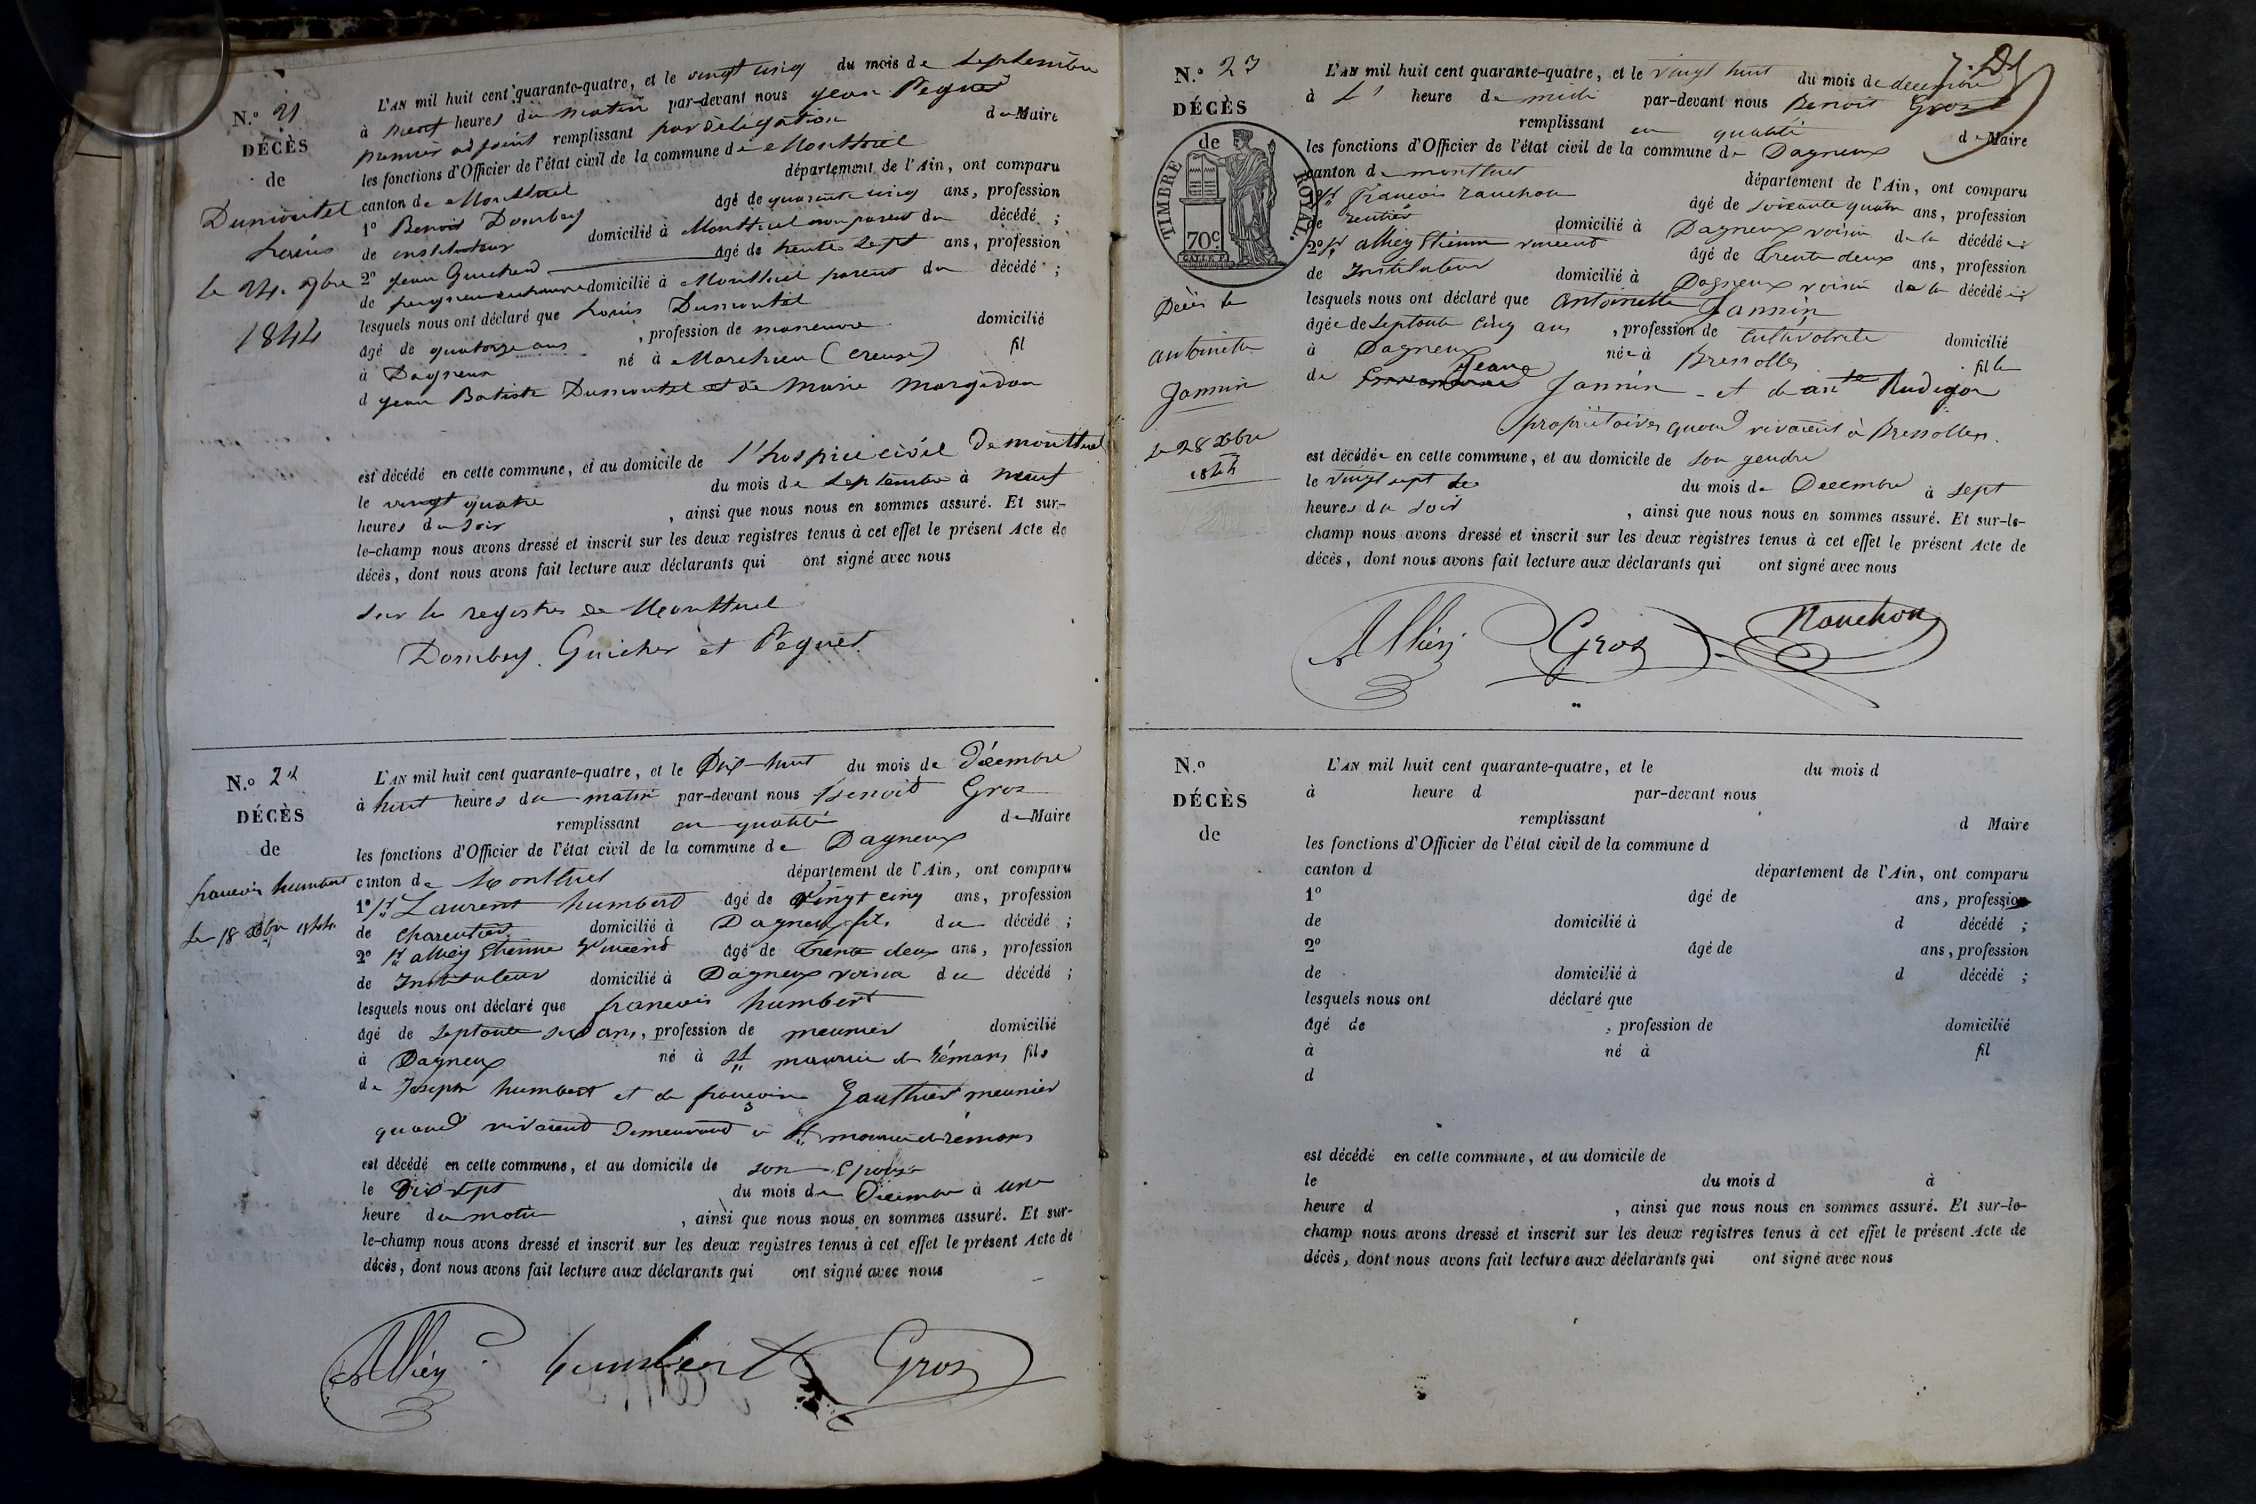 N.º 21
DÉCÈS
de
Dumontel
Louis
le 24. 7bre
1844
L'AN mil huit cent quarante-quatre, et le vingt cinq du mois de septembre
à neuf heures du matin par-devant nous Jean Peguet
premier adjoint remplissant par délégation de Maire
les fonctions d'Officier de l'état civil de la commune de Montluel
canton de Montluel département de l'Ain, ont comparu
1º Benoit Dombey âgé de quarante cinq ans, profession
de instituteur domicilié à Montluel non parent du décédé ;
2º Jean Guichard âgé de trente sept ans, profession
de domicilié à Montluel parent du décédé ;
lesquels nous ont déclaré que Louis Dumontel
âgé de quatorze ans , profession de maneuvre domicilié
à Dagneux né à (Creuse) fil
d Jean Batiste Dumontel et de Marie
est décédé en cette commune, et au domicile de l'hospice civil de montluel
le vingt quatre du mois de septembre à neuf
heures du soir , ainsi que nous nous en sommes assuré. Et sur-
le-champ nous avons dressé et inscrit sur les deux registres tenus à cet effet le présent Acte de
décès, dont nous avons fait lecture aux déclarants qui ont signé avec nous
sur les registres de Montluel
Dombey. Guicher et Peguet
N.º 22
DÉCÈS
de
francois humbert
le 18 Xbre 1844
L'AN mil huit cent quarante-quatre, et le Dix-huit du mois de Décembre
à huit heures du matin par-devant nous Benoit Gros
remplissant en qualité de Maire
les fonctions d'Officier de l'état civil de la commune de Dagneux
canton de Montluel département de l'Ain, ont comparu
1º Sr Laurent humbert âgé de vingt cinq ans, profession
de charentier domicilié à Dagneux fils du décédé ;
2º Sr alliey Etienne Vincent âgé de trente deux ans, profession
de Instituteur domicilié à Dagneux voisin du décédé ;
lesquels nous ont déclaré que francois humbert
âgé de septante ans, profession de meunier domicilié
à Dagneux né à St maurice de rémans fils
de Joseph humbert et de francoise Gauthier meunier
quand vivaient demeurant à St maurice de rémans
est décédé en cette commune, et au domicile de son Epouse
le Dix sept du mois de Décembre à une
heure du matin , ainsi que nous nous en sommes assuré. Et sur-
le-champ nous avons dressé et inscrit sur les deux registres tenus à cet effet le présent Acte de
décès, dont nous avons fait lecture aux déclarants qui ont signé avec nous
Alliey humbert Gros
N.º 23
DÉCÈS
de
TIMBRE ROYAL.
70c
Décès de
antoinette
Jannin
le 28 Xbre
1844
L'AN mil huit cent quarante-quatre, et le vingt huit du mois de decembre
à heure de midi par-devant nous Benoit Gros
remplissant en qualité de Maire
les fonctions d'Officier de l'état civil de la commune de Dagneux
canton de montluel département de l'Ain, ont comparu
Sr François ranchon âgé de soixante quatre ans, profession
de rentier domicilié à Dagneux voisin de la décédée ;
2º Sr alliey Etienne vincent âgé de trente deux ans, profession
de Instituteur domicilié à Dagneux voisin de la décédée ;
lesquels nous ont déclaré que antoinette Jannin
âgée de septante cinq ans , profession de cultivatrice domicilié
à Dagneux née à Bressolles fille
de Jean Jannin et de ante Rudigoz
propriétaires quand vivaient à Bressolles.
est décédée en cette commune, et au domicile de son gendre
le vingt sept de du mois de Decembre à sept
heures du soir , ainsi que nous nous en sommes assuré. Et sur-le-
champ nous avons dressé et inscrit sur les deux registres tenus à cet effet le présent Acte de
décès, dont nous avons fait lecture aux déclarants qui ont signé avec nous
Alliey Gros Ranchon
N.º
DÉCÈS
de
L'AN mil huit cent quarante-quatre, et le du mois d
à heure d par-devant nous
remplissant d Maire
les fonctions d'Officier de l'état civil de la commune d
canton d département de l'Ain, ont comparu
1º âgé de ans, profession
de domicilié à d décédé ;
2º âgé de ans, profession
de domicilié à d décédé ;
lesquels nous ont déclaré que
âgé de , profession de domicilié
à né à fil
d
est décédé en cette commune, et au domicile de
le du mois d à
heure d , ainsi que nous nous en sommes assuré. Et sur-le-
champ nous avons dressé et inscrit sur les deux registres tenus à cet effet le présent Acte de
décès, dont nous avons fait lecture aux déclarants qui ont signé avec nous